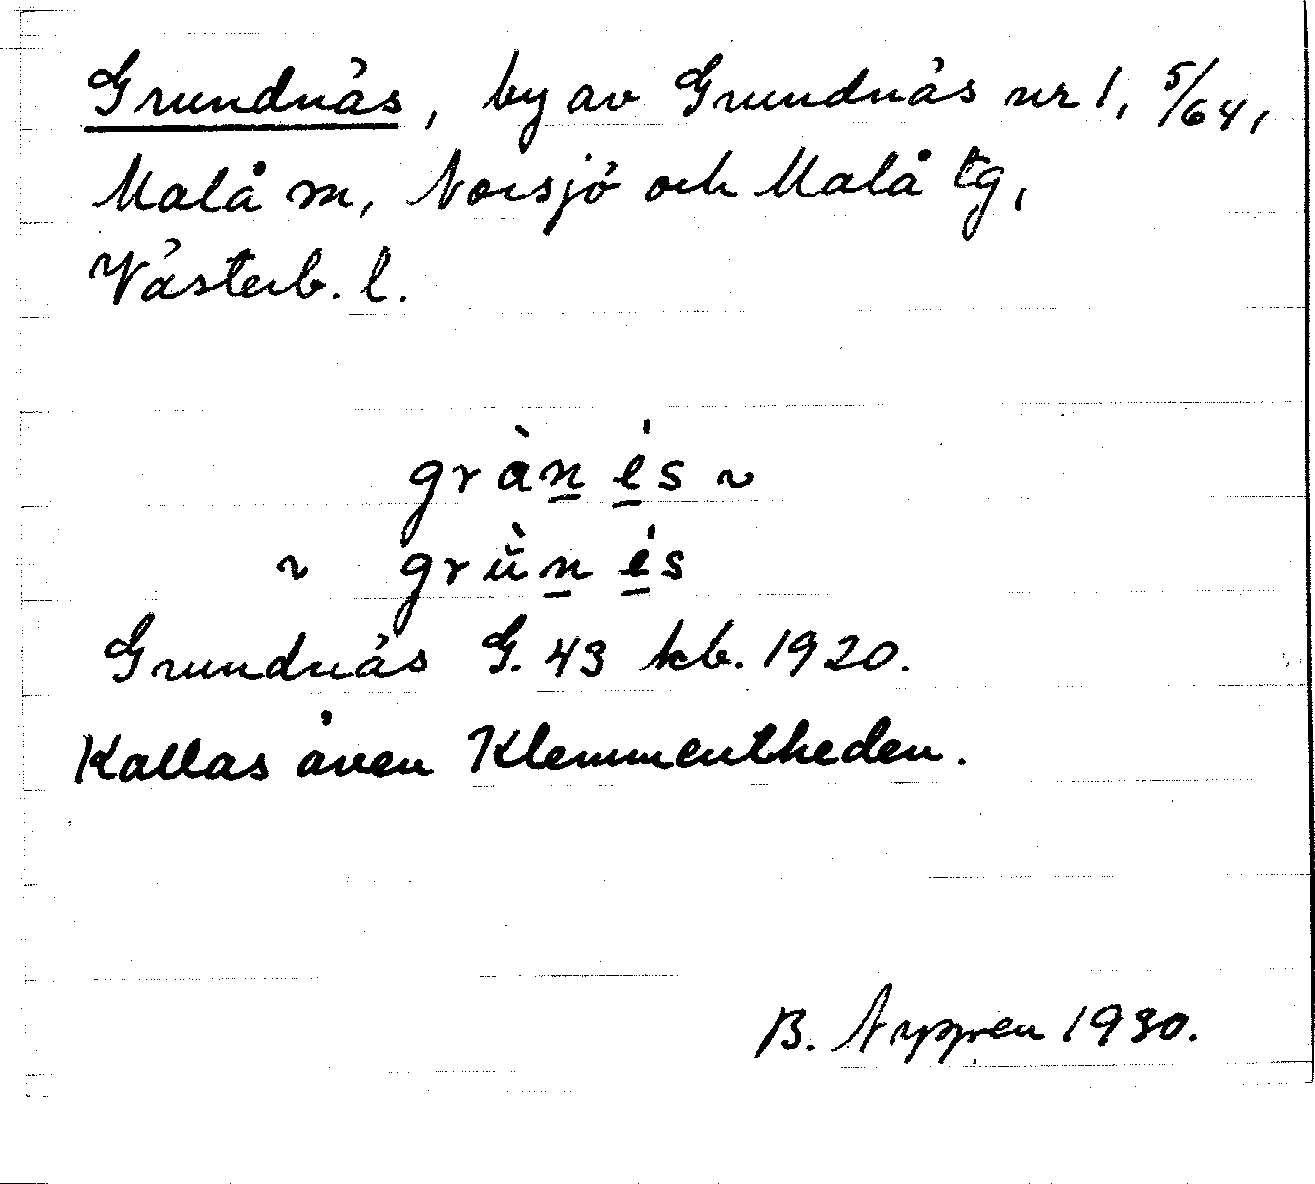 Grundnäs, by av Grundnäs nr 1, 5/64,
Malå sn, Norsjö och Malå tg,
Västerb. l.
gràn és ~
~ grùn és
Grundnäs G. 43 kb. 1920.
Kallas även Klemmentheden.
B. 1930.